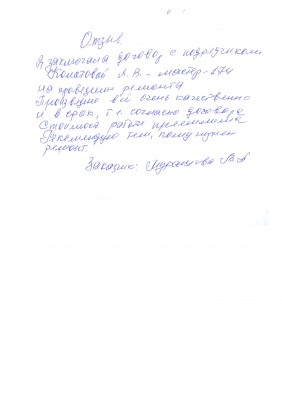 Отзыв.
Я заключала договор с подрядчиком
Л.В. - мастер-174
на проведении ремонта
Произведено всё очень качественно
и в срок, т.е. согласно договора
Стоимость работ приемлемая
Рекомендую тем, кому нужен
ремонт.
Заказчик: